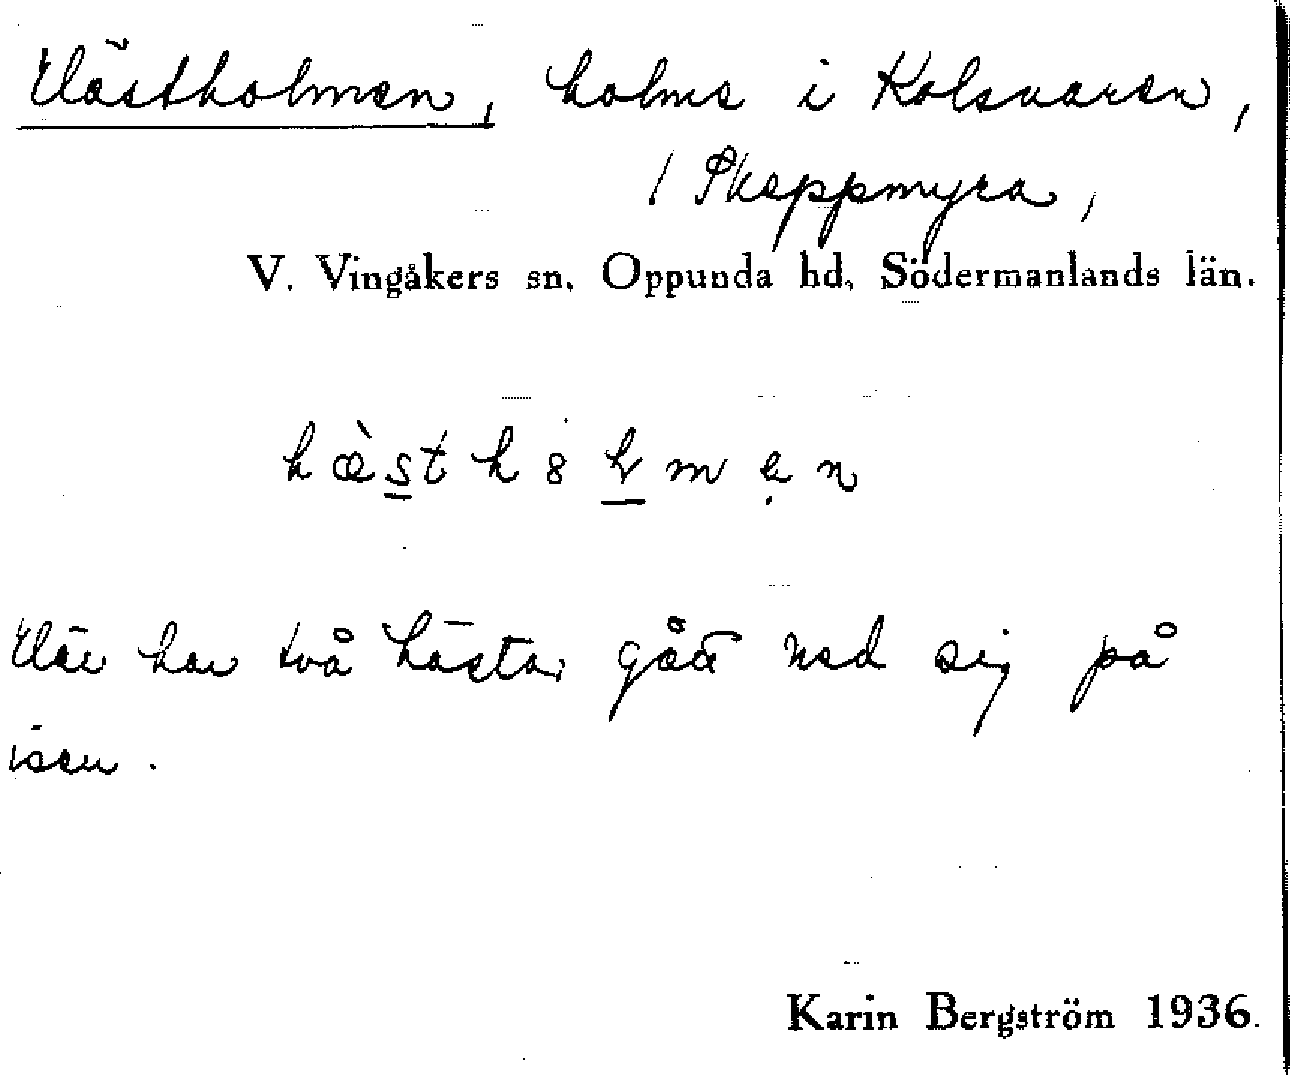 Hästholmen, holme i Kolsnaren,
/ Skeppmyra,
V. Vingåkers sn. Oppunda hd, Södermanlands län.
hæ̀sthȣlmẹn
Här har två hästar gått ned sig på
isen.
Karin Bergström 1936.